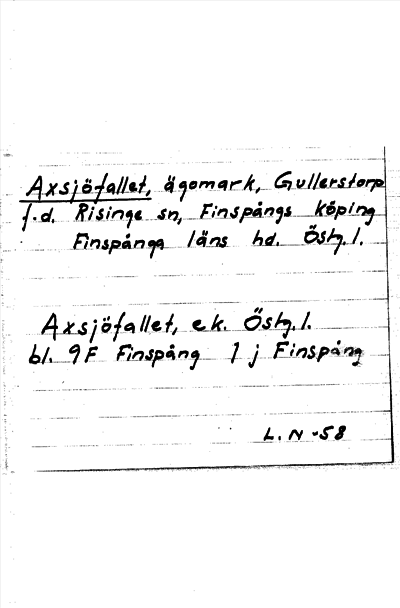 Axsjöfallet, ägomark, Gullerstorp
f.d. Risinge sn, Finspångs köping
Finspånga läns hd. Östg. l.
Axsjöfallet, ek. Östg. l.
bl. 9F Finspång 1 j Finspång
L. N -58